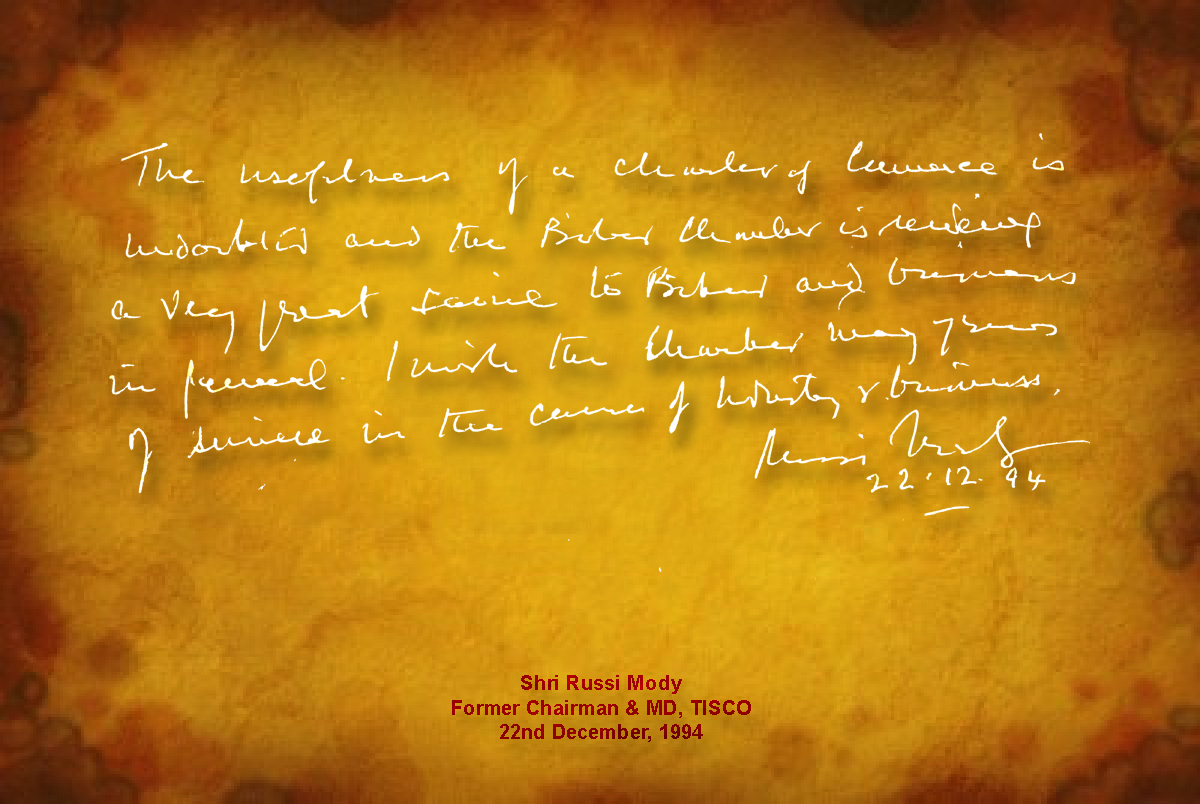 The usefulness of a chamber of Commerce is
undoubted and the Bihar Chamber is rendering
a very great service to Bihar and business
in general. I wish the Chamber many years
of service in the cause of Industry & business.
Russi Mody
22.12.94
Shri Russi Mody
Former Chairman & MD, TISCO
22nd December, 1994